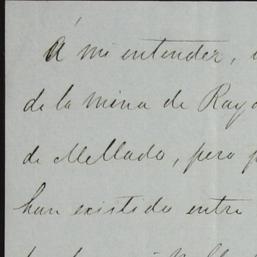 Á mi entender,
de la mina de Raya
de Mellado, pero
han existido entre